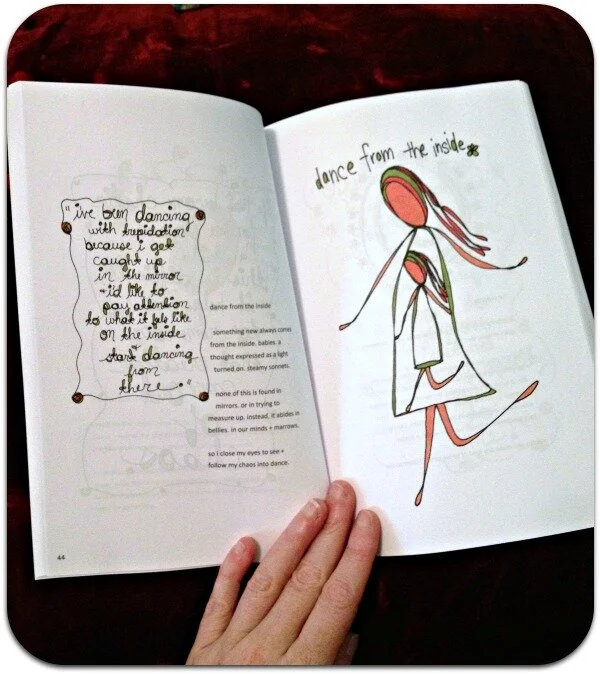 "i've been dancing
with trepidation
because i get
caught up
in the mirror
+ i'd like to
pay attention
to what it feels like
on the inside
+ start dancing
from
there."
dance from the inside
something new always comes
from the inside. babies. a
thought expressed as a light
turned on. steamy sonnets.
none of this is found in
mirrors. or in trying to
measure up. instead, it abides in
bellies. in our minds + marrows.
so i close my eyes to see +
follow my chaos into dance.
44
dance from the inside